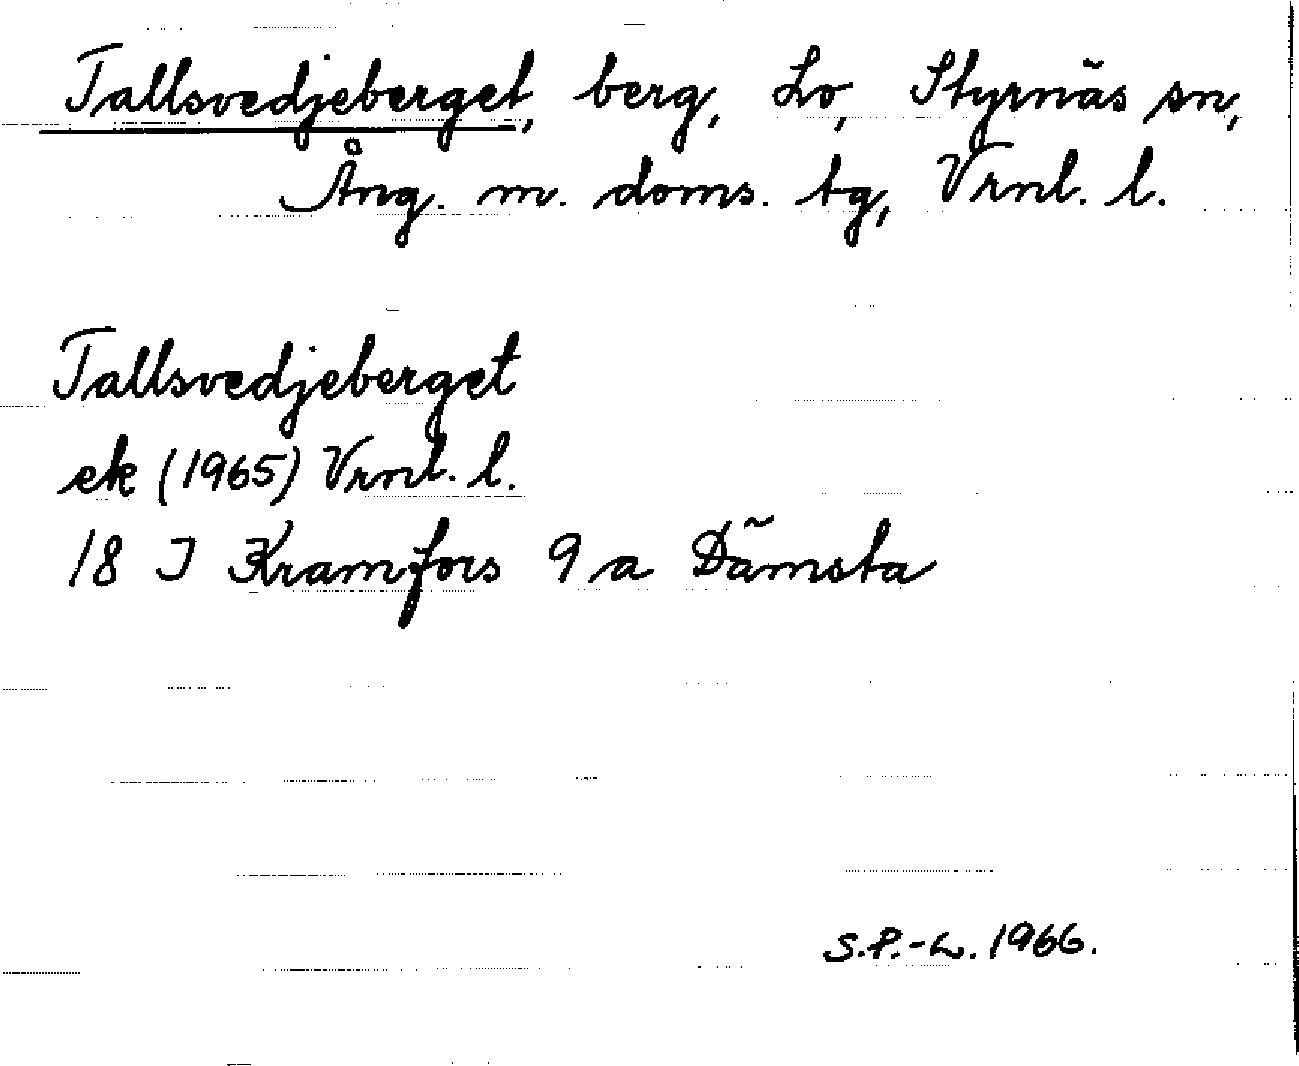 Tallsvedjeberget, berg, Lo, Styrnäs sn,
Ång. m. doms. tg, Vrnl. l.
Tallsvedjeberget
ek (1965) Vrnl. l.
18 I Kramfors 9 a Dämsta
S.P.-L. 1966.